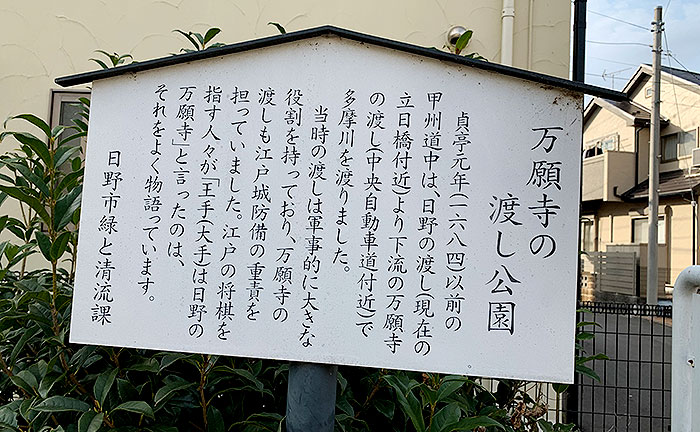 万願寺の
渡し公園
貞亭元年(一六八四)以前の
甲州道中は、日野の渡し(現在の
立日橋付近)より下流の万願寺
の渡し(中央自動車道付近)で
多摩川を渡りました。
当時の渡しは軍事的に大きな
役割を持っており、万願寺の
渡しも江戸城防備の重責を
担っていました。江戸の将棋を
指す人々が「王手(大手)は日野の
万願寺」と言ったのは、
それをよく物語っています。
日野市緑と清流課